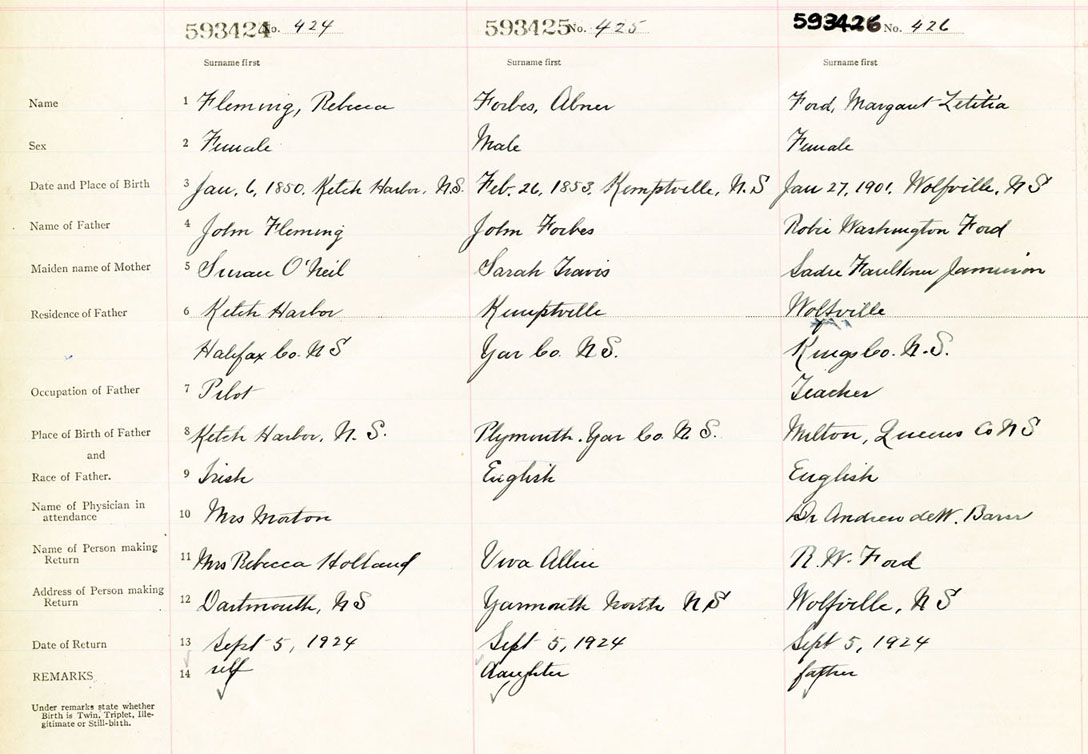 593424 No. 424 593425 No. 425 593426 No. 426
Surname first Surname first Surname first
Name 1 Fleming, Rebecca Forbes, Abner Ford, Margaret Letitia
Sex 2 Female Male Female
Date and Place of Birth 3 Jan. 6, 1850, Ketch Harbor, N.S. Feb. 26, 1853, Kemptville, N.S Jan 27, 1901, Wolfville, NS
Name of Father 4 John Fleming John Forbes Robie Washington Ford
Maiden name of Mother 5 Susan O'Neil Sarah Travis Sadie Faulkner Jamieson
Residence of Father 6 Ketch Harbor Kemptville Wolfville
Halifax Co. NS Yar Co. NS. Kings Co. N.S.
Occupation of Father 7 Pilot Teacher
Place of Birth of Father 8 Ketch Harbor, N.S. Plymouth. Yar Co. N.S. Milton, Queens Co NS
and
Race of Father. 9 Irish English English
Name of Physician in
attendance 10 Mrs Morton Dr Andrew deW. Barss
Name of Person making
Return 11 Mrs Rebecca Holland Viva Allen R.W. Ford
Address of Person making
Return 12 Dartmouth, NS Yarmouth North NS Wolfville, NS
Date of Return 13 Sept 5, 1924 Sept 5, 1924 Sept 5, 1924
REMARKS 14 self daughter father
Under remarks state whether
Birth is Twin, Triplet, Ille-
gitimate or Still-birth.